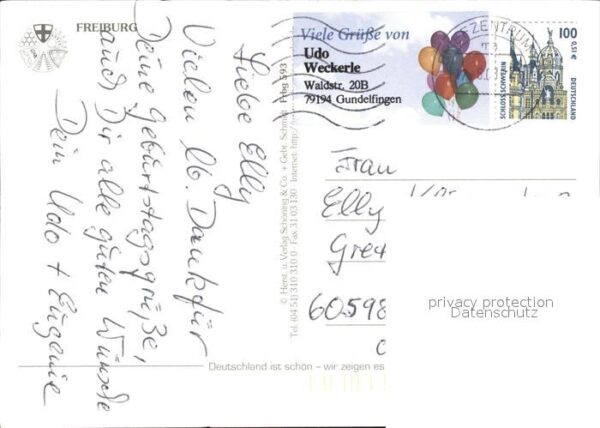 FREIBURG
Liebe Elly
Vielen lb. Dank für
Deine Geburtstagsgrüße,
auch Dir alle guten Wünsche
Dein Udo + Eugenie
© Herst. u. Verlag Schöning & Co. + Gebr. Schmidt Frbg 593
Tel. (04 51) 310 310 0 · Fax 31 03 130 · Internet: http://
Deutschland ist schön – wir zeigen es
Viele Grüße von
Udo
Weckerle
Waldstr. 20B
79194 Gundelfingen
EZENTRUM
100
0,51€
DEUTSCHLAND
SCHLOSS SCHWERIN
Frau
Elly
Gre
60598
privacy protection
Datenschutz